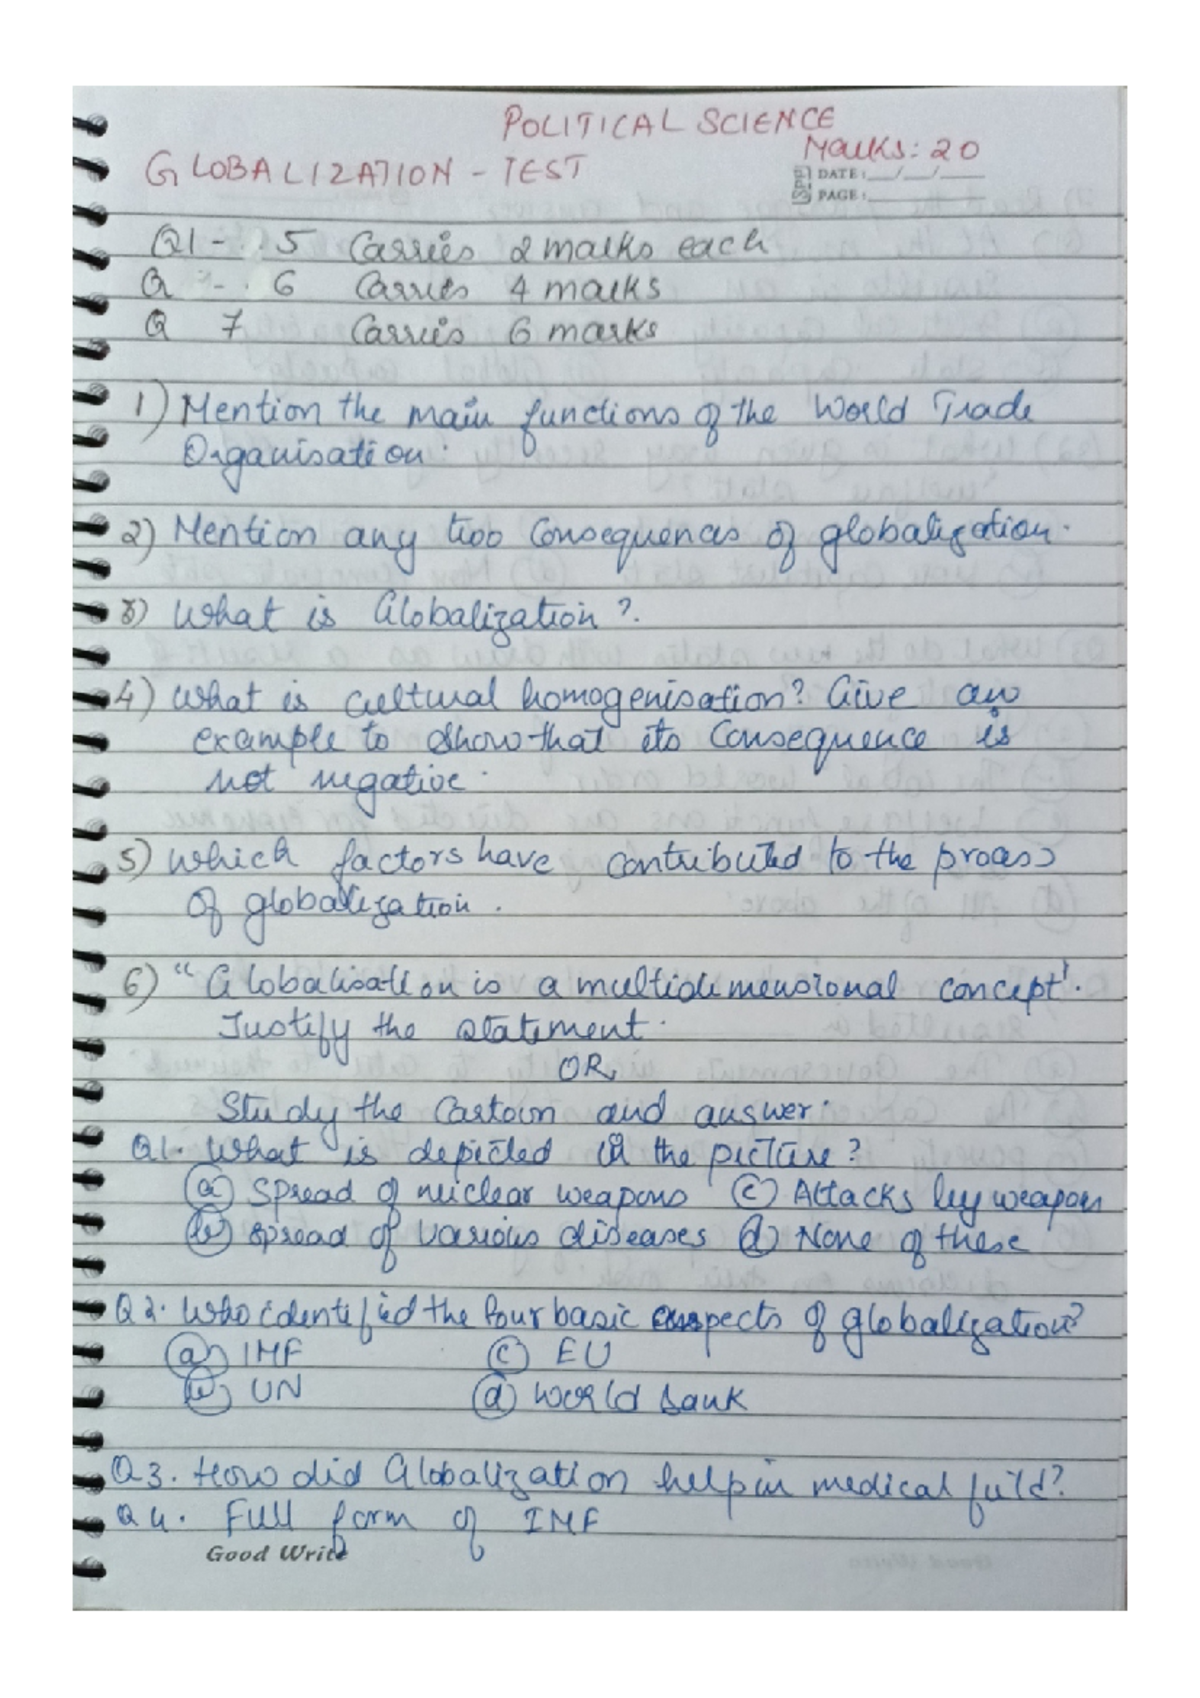 POLITICAL SCIENCE
GLOBALIZATION - TEST
Marks: 20
DATE: __/__/____
PAGE: ____
Q1 - 5 Carries 2 marks each
Q - 6 Carries 4 marks
Q 7 Carries 6 marks
1) Mention the main functions of the World Trade
Organisation.
2) Mention any two consequences of globalization.
3) What is Globalization?
4) What is cultural homogenisation? Give an
example to show that its consequence is
not negative.
5) Which factors have contributed to the process
of globalization.
6) "Globalisation is a multidimensional concept".
Justify the statement.
OR
Study the Cartoon and answer.
Q1. What is depicted in the picture?
(a) Spread of nuclear weapons (c) Attacks by weapon
(b) Spread of various diseases (d) None of these
Q2. Who identified the four basic aspects of globalization?
(a) IMF (c) EU
(b) UN (d) World Bank
Q3. How did Globalization help in medical feild?
Q4. Full form of IMF
Good Write